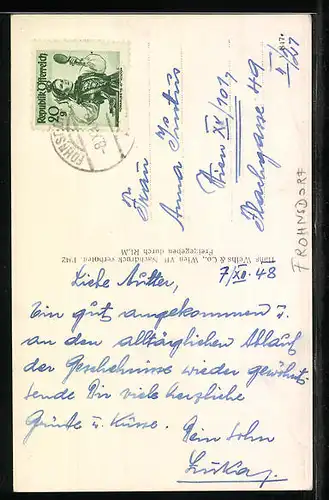 Republik Österreich
20
g
FOHNSD
Frau
Anna
Wien XV/101,
gasse 49
II/27
FROHNSDORF
Hans Weihs & Co., Wien VII Nachdruck verboten
Freigegeben durch RLM
7/XII. 48
Liebe Mutter,
Bin gut angekommen u.
an den alltäglichen Ablauf
der Geschehnisse wieder gewöhnt,
sende Dir viele herzliche
Grüsse u. Küsse.
Dein Sohn